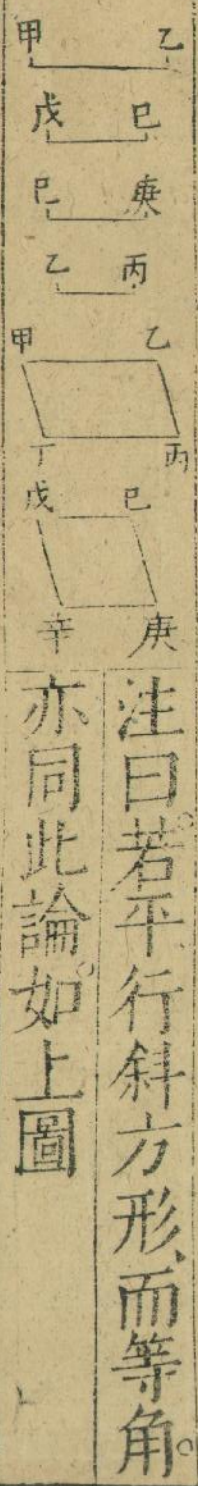 甲 乙
戊 巳
巳 庚
乙 丙
甲 乙
丁 丙
戊 巳
辛 庚
注曰。若平行斜方形、而等角。
亦同此論。如上圖